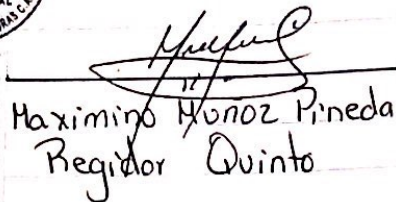 RAS C.A.
Maximino Munoz Pineda
Regidor Quinto